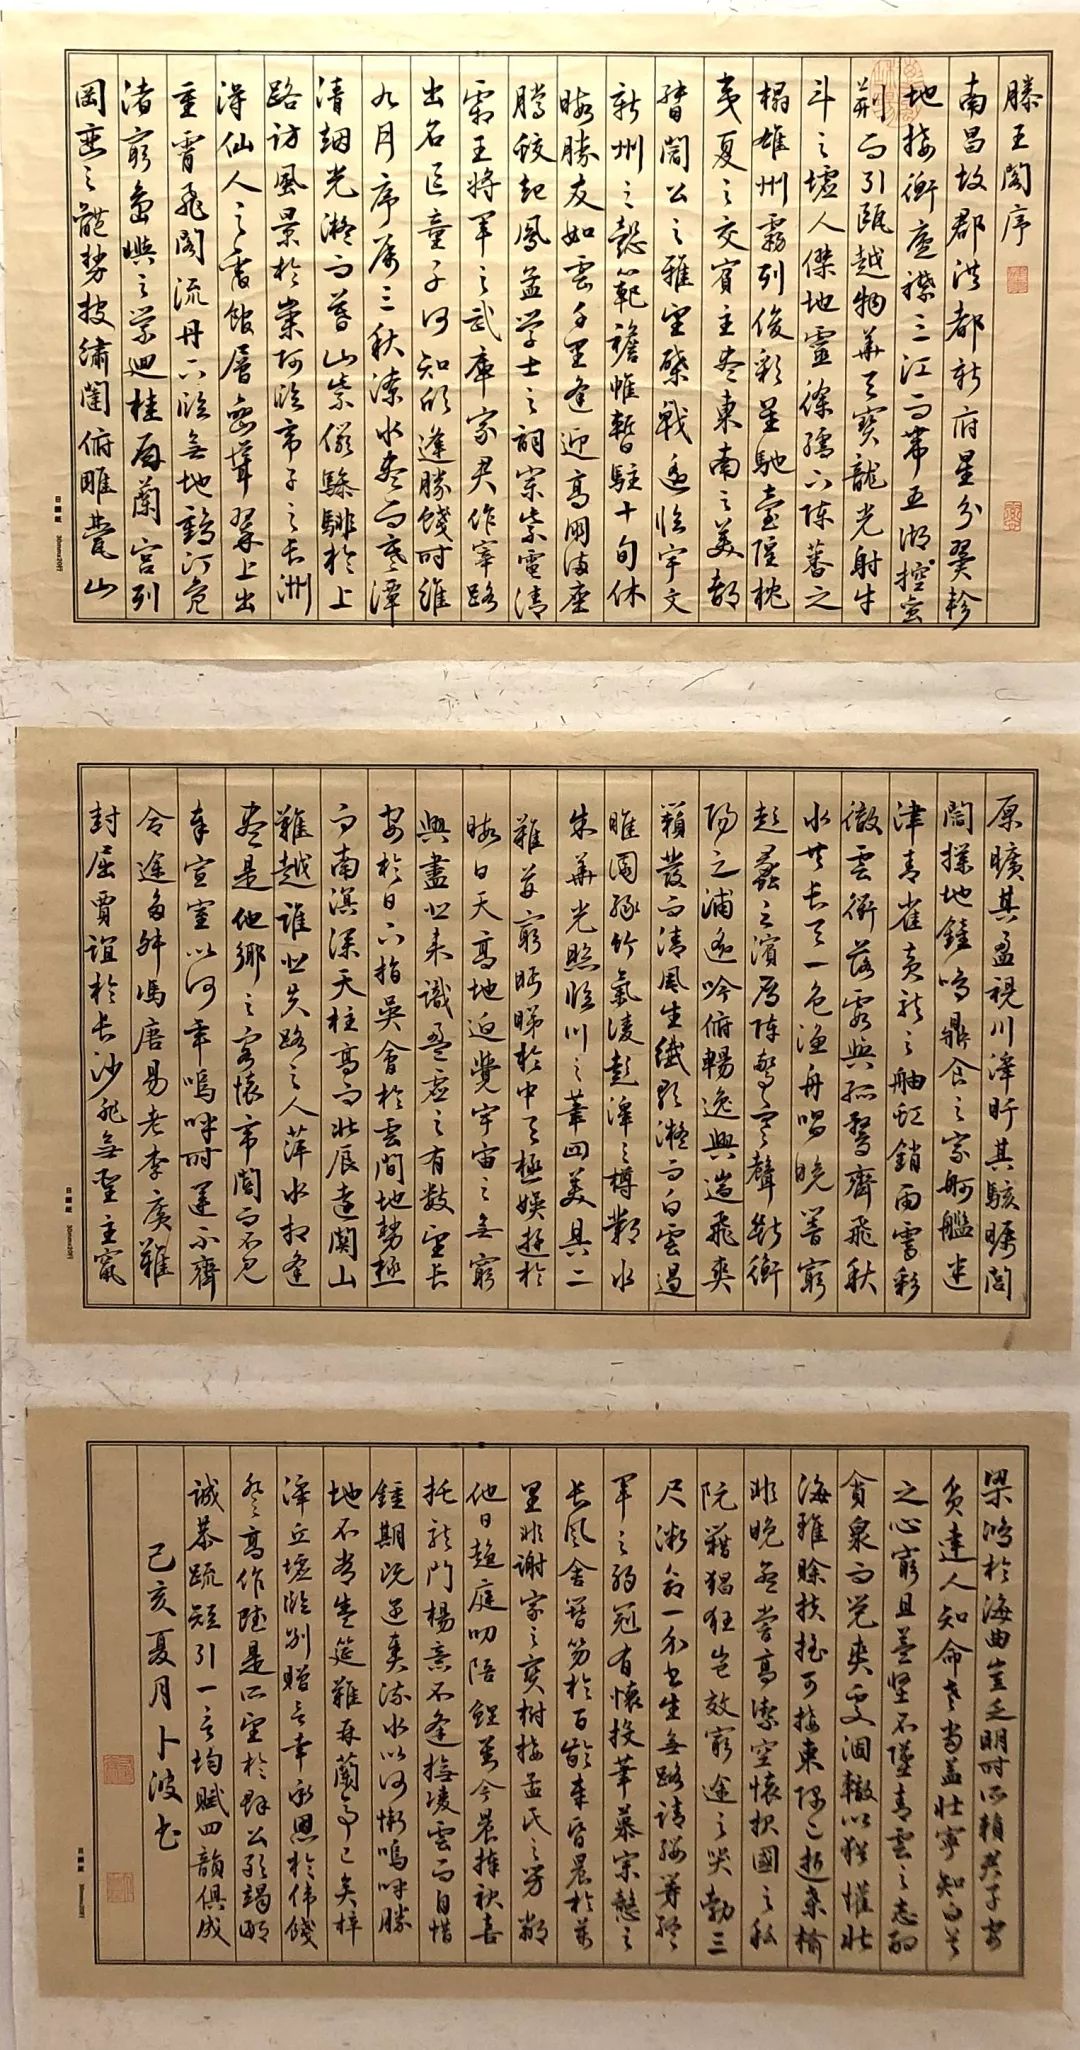 滕王閣序
南昌故郡洪都新府星分翼軫
地接衡廬襟三江而帶五湖控蠻
荊而引甌越物華天寶龍光射牛
斗之墟人傑地靈徐孺下陳蕃之
榻雄州霧列俊彩星馳臺隍枕
夷夏之交賓主盡東南之美都
督閻公之雅望棨戟遙臨宇文
新州之懿範襜帷暫駐十旬休
暇勝友如雲千里逢迎高朋滿座
騰蛟起鳳孟学士之詞宗紫電清
霜王將軍之武庫家君作宰路
出名區童子何知躬逢勝餞時維
九月序屬三秋潦水盡而寒潭
清烟光凝而暮山紫儼驂騑於上
路訪風景於崇阿臨帝子之長洲
得仙人之舊館層巒聳翠上出
重霄飛閣流丹下臨無地鶴汀鳧
渚窮島嶼之縈迴桂殿蘭宮列
岡巒之體勢披繡闥俯雕甍山
原曠其盈視川澤盱其駭矚閭
閻撲地鐘鳴鼎食之家舸艦迷
津青雀黃龍之舳虹銷雨霽彩
徹雲衢落霞與孤鶩齊飛秋
水共長天一色漁舟唱晚響窮
彭蠡之濱雁陣驚寒聲斷衡
陽之浦遙吟俯暢逸興遄飛爽
籟發而清風生纖歌凝而白雲遏
睢園綠竹氣凌彭澤之樽鄴水
朱華光照臨川之筆四美具二
難并窮眄睇於中天極娛遊於
暇日天高地迥覺宇宙之無窮
興盡悲來識盈虛之有數望長
安於日下指吳會於雲間地勢極
而南溟深天柱高而北辰遠關山
難越誰悲失路之人萍水相逢
盡是他鄉之客懷帝閽而不見
奉宣室以何年嗚呼時運不齊
命途多舛馮唐易老李廣難
封屈賈誼於長沙非無聖主竄
梁鴻於海曲豈乏明時所賴君子安
貧達人知命老當益壯寧知白首
之心窮且益堅不墜青雲之志酌
貪泉而覺爽處涸轍以猶懽北
海雖賒扶搖可接東隅已逝桑榆
非晚孟嘗高潔空懷報國之私
阮籍猖狂豈效窮途之哭勃三
尺微命一介書生無路請纓等終
軍之弱冠有懷投筆慕宗愨之
長風舍簪笏於百齡奉昏晨於萬
里非謝家之寶樹接孟氏之芳鄰
他日趨庭叨陪鯉對今晨捧袂喜
托龍門楊意不逢撫凌雲而自惜
鍾期既遇奏流水以何慚嗚呼勝
地不常盛筵難再蘭亭已矣梓
澤丘墟臨別贈言幸承恩於偉餞
登高作賦是所望於群公敢竭鄙
誠恭疏短引一言均賦四韻俱成
己亥夏月卜波書